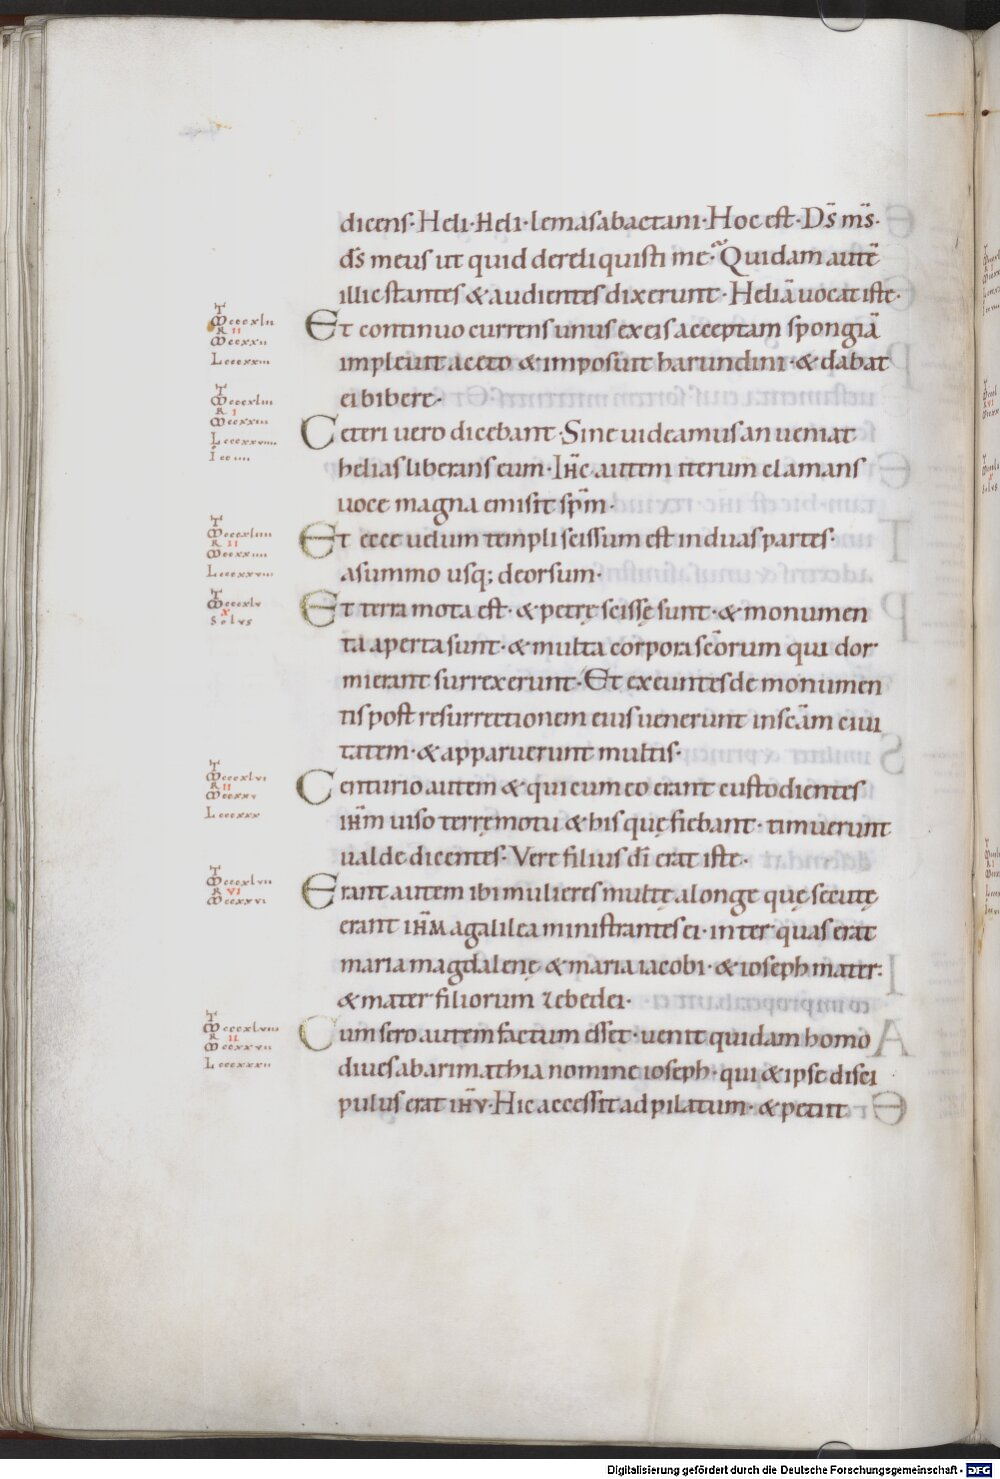 dicens· Heli· Heli· lemasabactani· Hoc est· Ds̄ ms̄·
ds̄ meus ut quid dereliquisti me· Quidam autē
illic stantes & audientes dixerunt· Heliā uocat iste·
Et continuo currens unus ex eis acceptam spongiā
impleuit aceto & imposuit harundini· & dabat
ei bibere·
Ceteri uero dicebant· Sine uideamus an ueniat
helias liberans eum· Ih̄c autem iterum clamans
uoce magna emisit sp̄m·
Et ecce uelum templi scissum est in duas partes·
a summo usq; deorsum·
Et terra mota est· & petrę scissę sunt· & monumen
ta aperta sunt· & multa corpora sc̄orum qui dor
mierant surrexerunt· Et exeuntes de monumen
tis post resurrectionem eius uenerunt in sc̄am ciui
tatem· & apparuerunt multis·
Centurio autem & qui cum eo erant custodientes
ih̄m uiso terręmotu & his quę fiebant· timuerunt
ualde dicentes· Vere filius dī erat iste·
Erant autem ibi mulieres multę a longe quę secutę
erant ih̄m a galilea ministrantes ei· inter quas erat
maria magdalenę & maria iacobi· & ioseph mater·
& mater filiorum zebedei·
Cum sero autem factum esset· uenit quidam homo
diues ab arimathia nomine ioseph· qui & ipse disci
pulus erat ih̄v· Hic accessit ad pilatum· & petiit
Digitalisierung gefördert durch die Deutsche Forschungsgemeinschaft - DFG